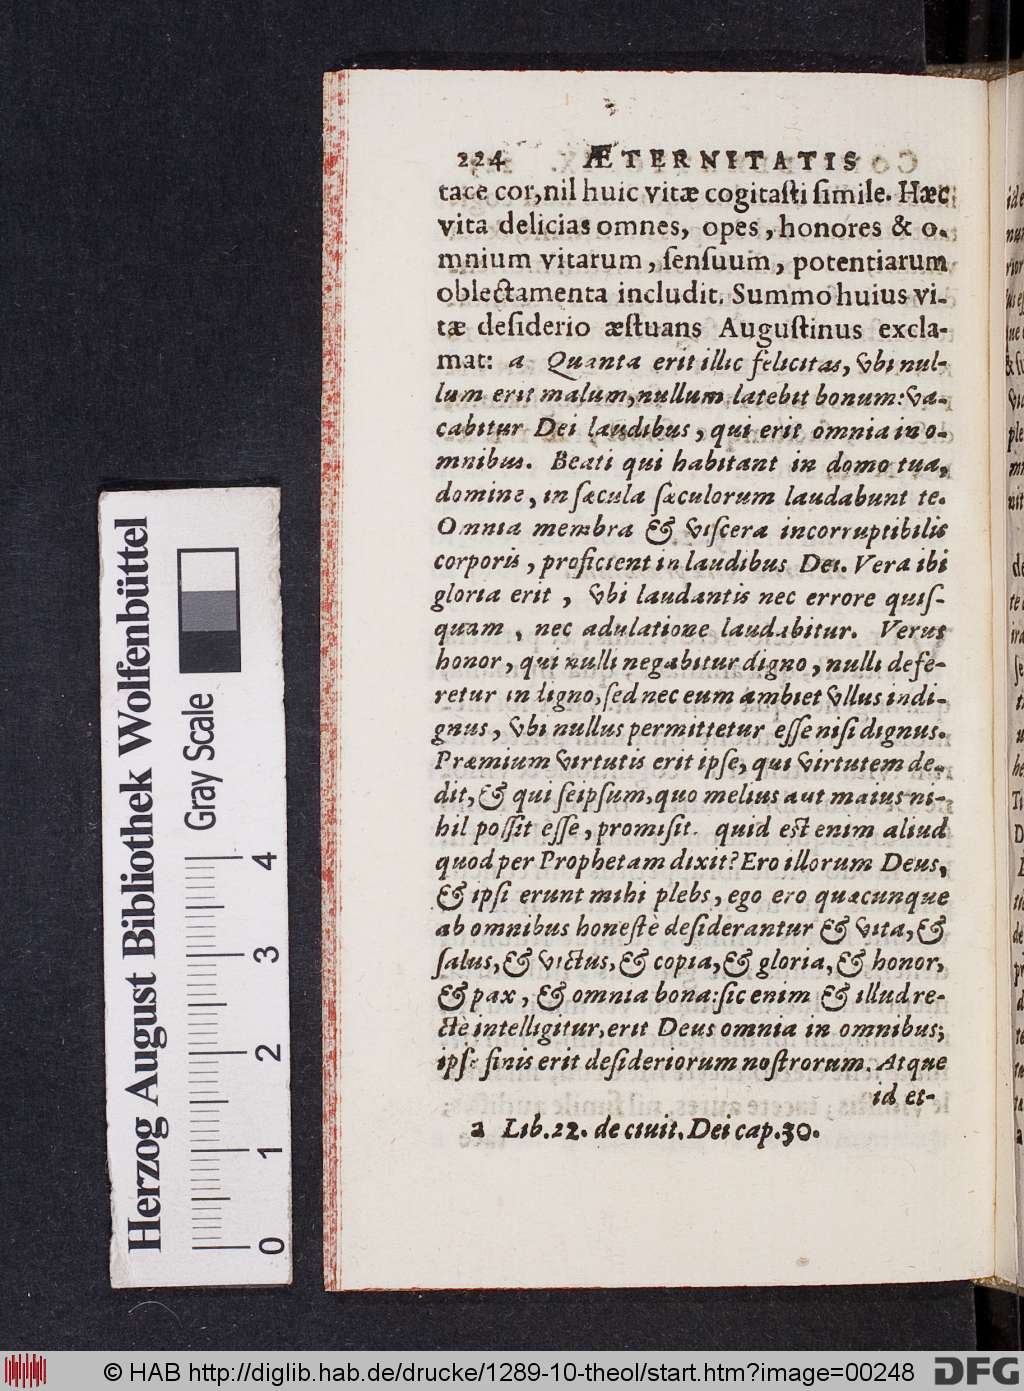 224 ÆTERNITATIS
tace cor,nil huic vitæ cogitaſti ſimile. Hæc
vita delicias omnes, opes, honores & o-
mnium vitarum, ſenſuum, potentiarum
oblectamenta includit. Summo huius vi-
tæ deſiderio æſtuans Auguſtinus excla-
mat: a Quanta erit illic felicitas, vbi nul-
lum erit malum, nullum latebit bonum: va-
cabitur Dei laudibus, qui erit omnia in o-
mnibus. Beati qui habitant in domo tua,
domine, in ſæcula ſæculorum laudabunt te.
Omnia membra & viſcera incorruptibilis
corporis, proficient in laudibus Dei. Vera ibi
gloria erit, vbi laudantis nec errore quiſ-
quam, nec adulatione laudabitur. Verus
honor, qui nulli negabitur digno, nulli defe-
retur indigno, ſed nec eum ambiet vllus indi-
gnus, vbi nullus permittetur eſſe niſi dignus.
Præmium virtutis erit ipſe, qui virtutem de-
dit, & qui ſeipſum, quo melius aut maius ni-
hil poſſit eſſe, promiſit. quid eſt enim aliud
quod per Prophetam dixit? Ero illorum Deus,
& ipſi erunt mihi plebs, ego ero quæcunque
ab omnibus honeſtè deſiderantur & vita, &
ſalus, & victus, & copia, & gloria, & honor,
& pax, & omnia bona: ſic enim & illud re-
ctè intelligitur, erit Deus omnia in omnibus;
ipſe finis erit deſideriorum noſtrorum. Atque
id et-
a Lib.22. de ciuit. Dei cap.30.
Herzog August Bibliothek Wolfenbüttel
Gray Scale
0 1 2 3 4
© HAB http://diglib.hab.de/drucke/1289-10-theol/start.htm?image=00248
DFG